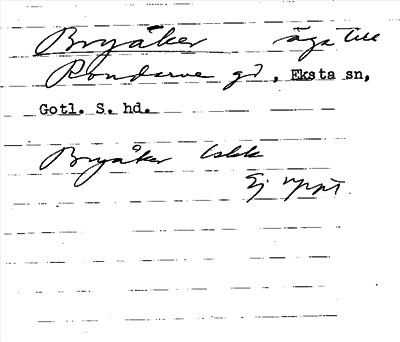 Bryåker äga till
Rondarve gd, Eksta sn,
Gotl. S. hd.
Bryåker
Ej uppt.